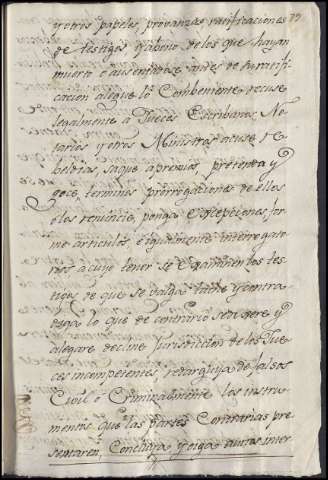 y otros papeles, provanzas ratificaciones 79
de testigos y abono de los que hayan
muerto o ausentadose antes de su ratifi-
cacion alegue lo Combeniente, recuse
legalmente a Jueces Escribanos No-
tarios y otros Ministros acuse re-
beldias, saque apremios pretenda y
goce terminos prorrogaciones de ellos
o los renuncie, ponga excepciones for-
me articulos, e igualmente interrogato-
rios a cuyo tenor se examinen los tes-
tigos de que se valga tache y contra-
diga lo que de contrario se dixere y
alegare decline Jurisdiccion de los Jue-
ces incompetentes, redarguya de falsos
Civil o Criminalmente los instru-
mentos que las partes Contrarias pre-
sentaren, Concluya y oiga autos inter